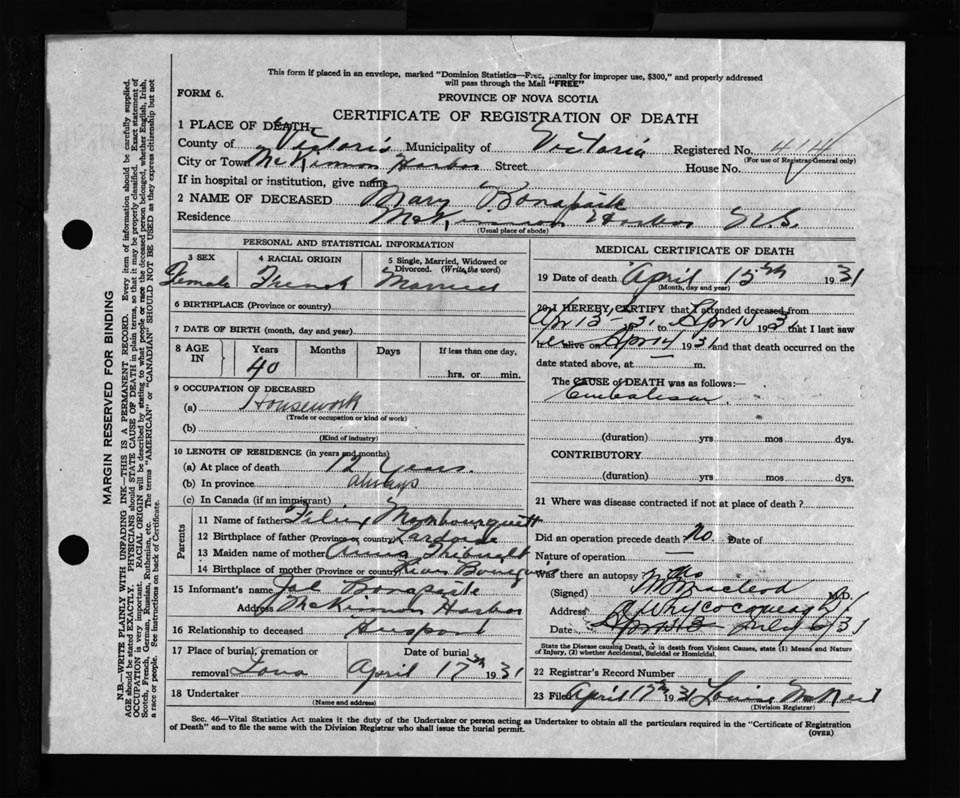 This form if placed in an envelope, marked "Dominion Statistics—Free, penalty for improper use, $300," and properly addressed
will pass through the Mail "FREE"
FORM 6.
PROVINCE OF NOVA SCOTIA
CERTIFICATE OF REGISTRATION OF DEATH
1 PLACE OF DEATH
County of Victoria Municipality of Victoria Registered No. 414
(For use of Registrar General only)
City or Town McKinnon Harbor Street House No.
If in hospital or institution, give name
2 NAME OF DECEASED Mary
Residence McKinnon Harbor N.S.
(Usual place of abode)
PERSONAL AND STATISTICAL INFORMATION
3 SEX 4 RACIAL ORIGIN 5 Single, Married, Widowed or Divorced. (Write the word)
Female French Married
6 BIRTHPLACE (Province or country)
7 DATE OF BIRTH (month, day and year)
8 AGE IN Years Months Days If less than one day,
40 hrs. or min.
9 OCCUPATION OF DECEASED
(a) Housework
(Trade or occupation or kind of work)
(b)
(Kind of industry)
10 LENGTH OF RESIDENCE (in years and months)
(a) At place of death 12 Years.
(b) In province always
(c) In Canada (if an immigrant)
Parents
11 Name of father
12 Birthplace of father (Province or country) Lardoise
13 Maiden name of mother Anna
14 Birthplace of mother (Province or country) River Bourgeois
15 Informant's name
Address McKinnon Harbor
16 Relationship to deceased
17 Place of burial, cremation or Date of burial
removal Iona April 17th 1931
18 Undertaker
(Name and address)
MEDICAL CERTIFICATE OF DEATH
19 Date of death April 15th 1931
(Month, day and year)
20 I HEREBY CERTIFY that I attended deceased from
Apr 13 - 31 to Apr 193 that I last saw
her alive on Apr 14 1931 and that death occurred on the
date stated above, at — m.
The CAUSE of DEATH was as follows:—
Embolism
(duration) yrs mos dys.
CONTRIBUTORY
(duration) yrs mos dys.
21 Where was disease contracted if not at place of death ?
Did an operation precede death No. Date of
Nature of operation —
Was there an autopsy? No
(Signed) Macleod M.D.
Address Whycocomagh
Date
State the Disease causing Death, or in death from Violent Causes, state (1) Means and Nature
of Injury, (2) whether Accidental, Suicidal or Homicidal.
22 Registrar's Record Number
23 Filed April 17th 1931 Louise McNeil
(Division Registrar)
Sec. 46—Vital Statistics Act makes it the duty of the Undertaker or person acting as Undertaker to obtain all the particulars required in the "Certificate of Registration
of Death" and to file the same with the Division Registrar who shall issue the burial permit.
(OVER)
MARGIN RESERVED FOR BINDING
N.B.—WRITE PLAINLY WITH UNFADING INK—THIS IS A PERMANENT RECORD. Every item of information should be carefully supplied.
AGE should be stated EXACTLY. PHYSICIANS should STATE CAUSE OF DEATH in plain terms, so that it may be properly classified. Exact statement of
OCCUPATION is very important. RACIAL ORIGIN will be described by stating to what people or race the deceased person belonged, whether English, Irish,
Scotch, French, German, Russian, Ruthenian, etc. The terms "AMERICAN" or "CANADIAN" SHOULD NOT BE USED as they express citizenship but not
a race or people. See instructions on back of Certificate.